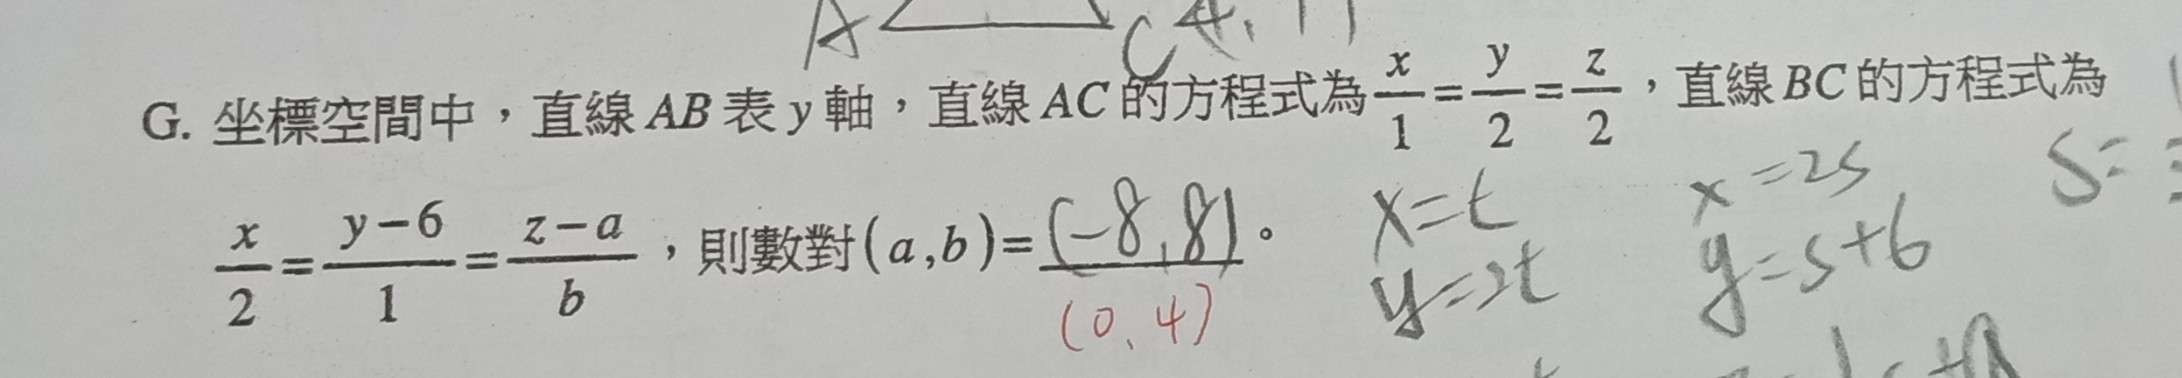 A C(4,
G. 坐標空間中，直線AB表y軸，直線AC的方程式為x/1=y/2=z/2，直線BC的方程式為
x/2=y-6/1=z-a/b，則數對(a,b)=(-8,8)。
(0、4)
x=t
y=2t
x=2s
y=s+6
s=